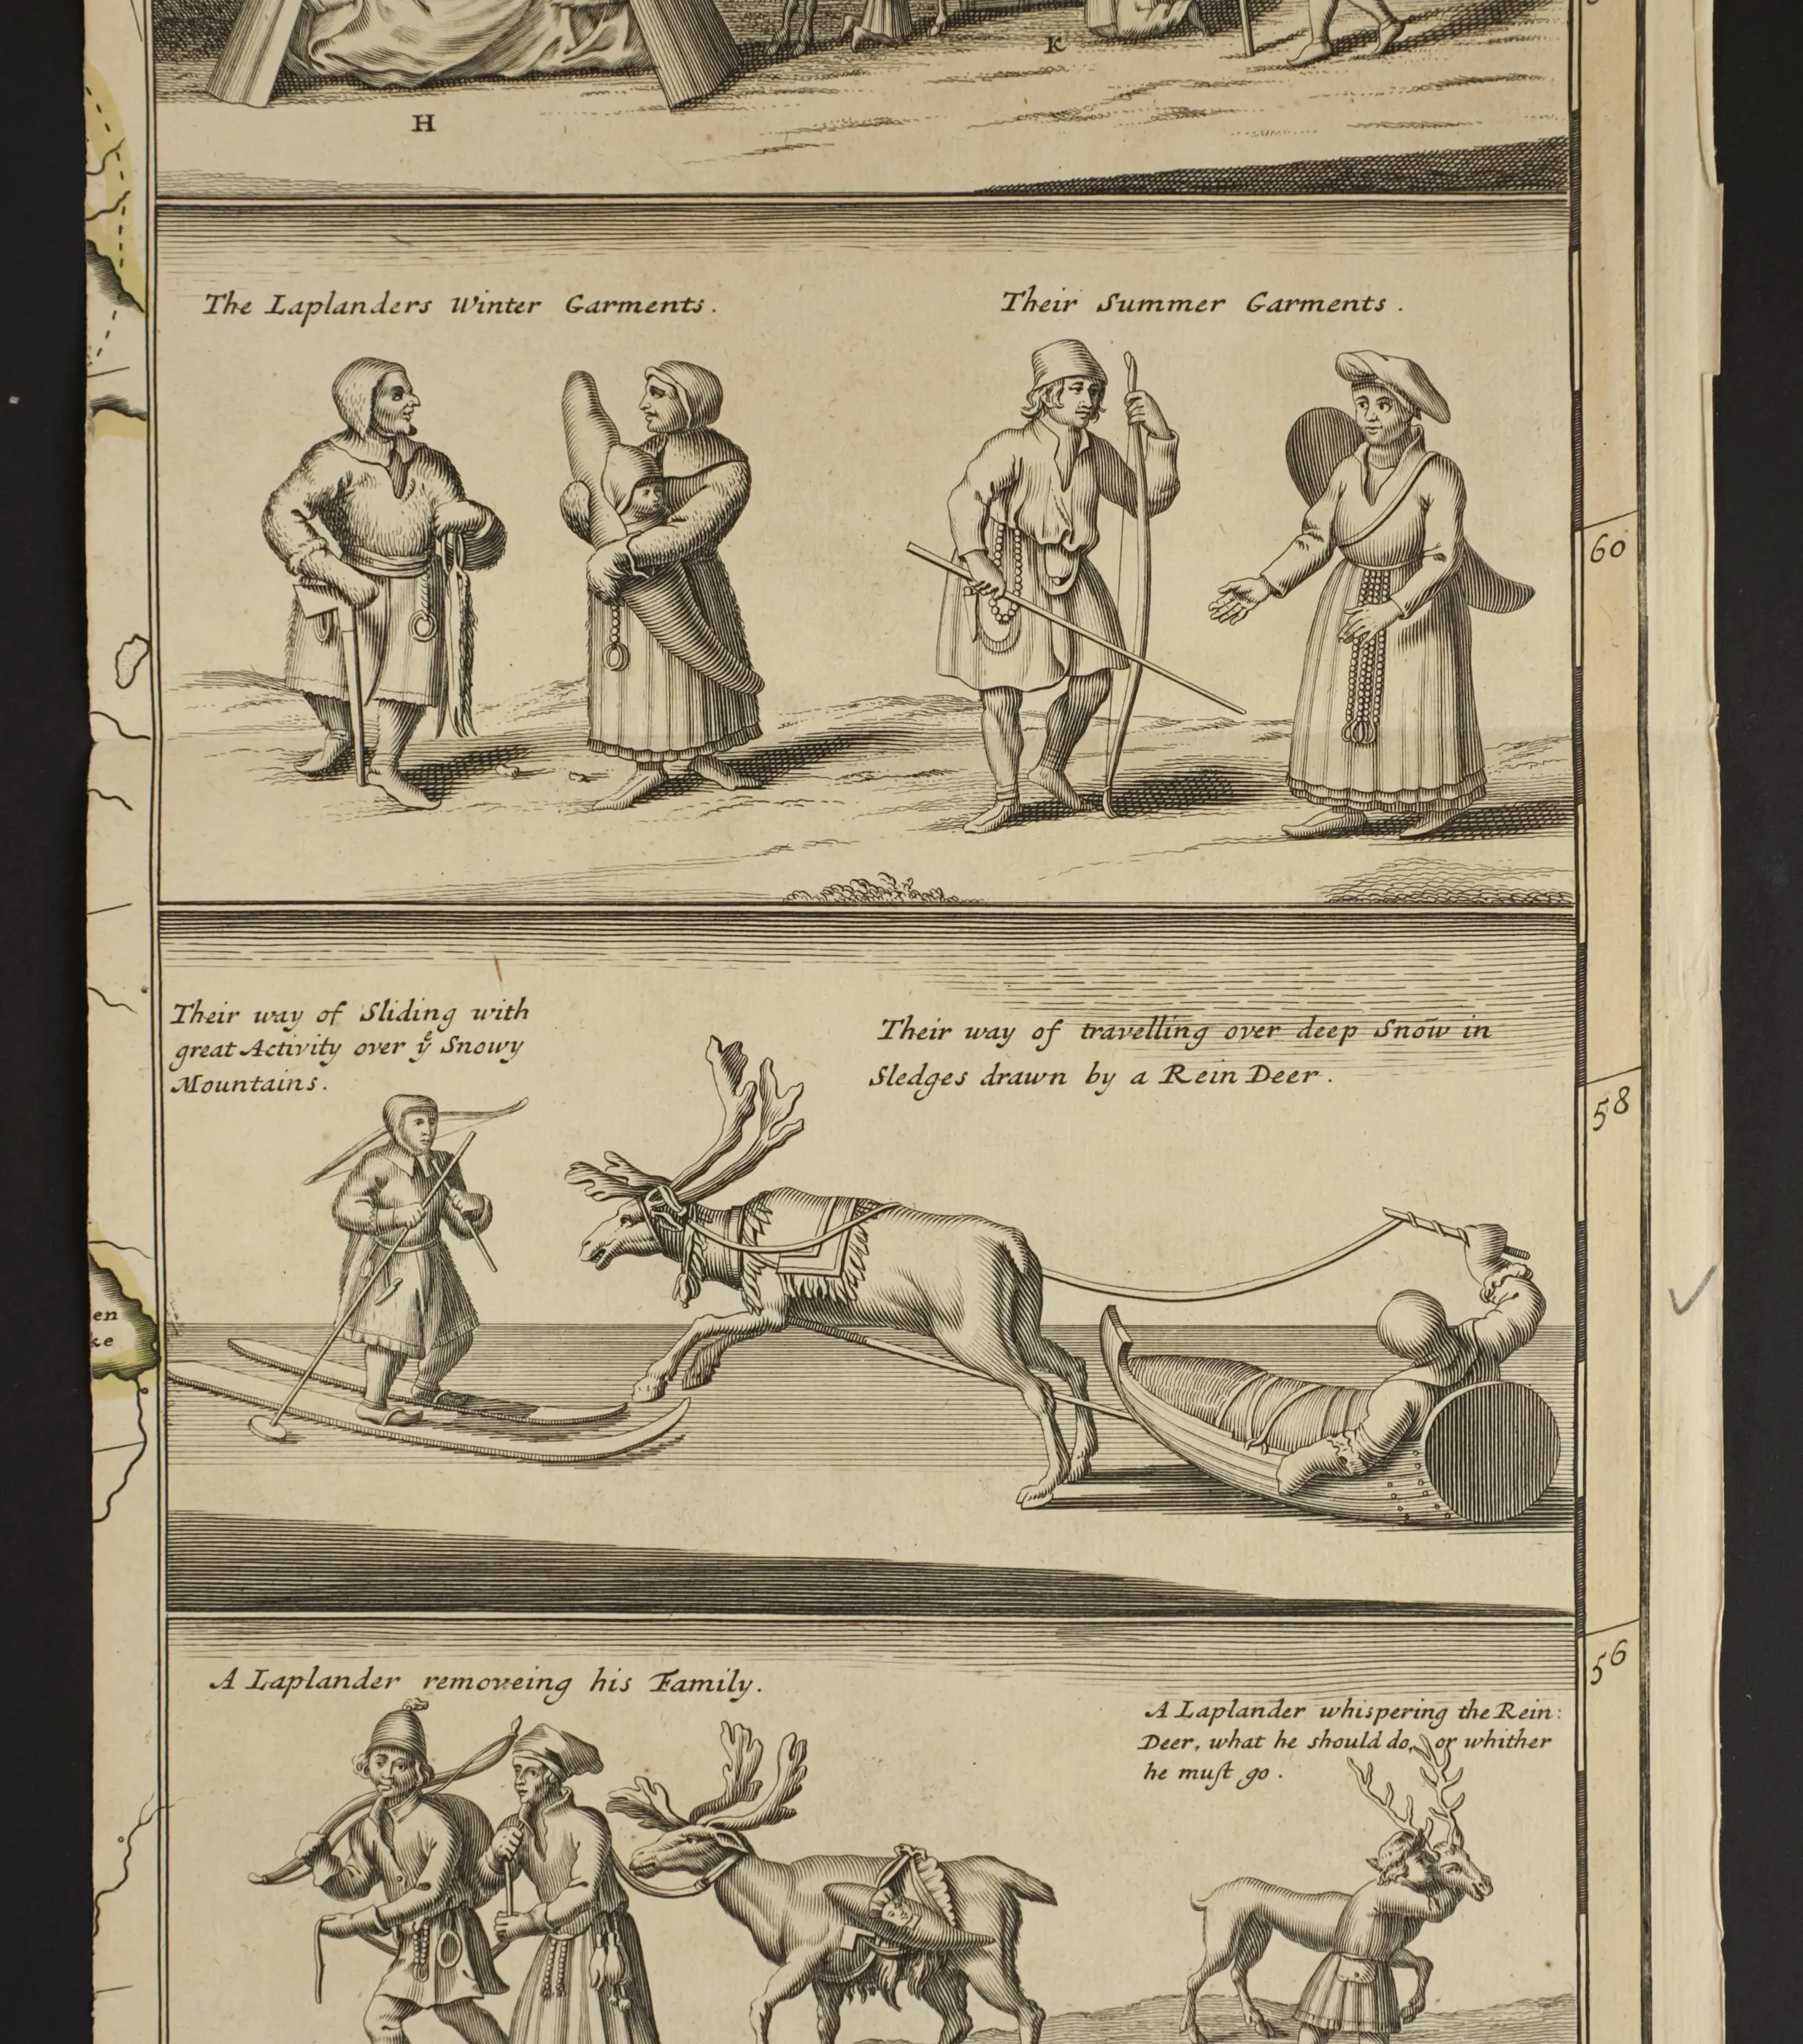 K
H
The Laplanders Winter Garments.
Their Summer Garments.
60
Their way of Sliding with
great Activity over yͤ Snowy
Mountains.
Their way of travelling over deep Snow in
Sledges drawn by a Rein Deer.
58
en
ke
56
A Laplander removeing his Family.
A Laplander whispering the Rein:
Deer, what he should do, or whither
he muſt go.